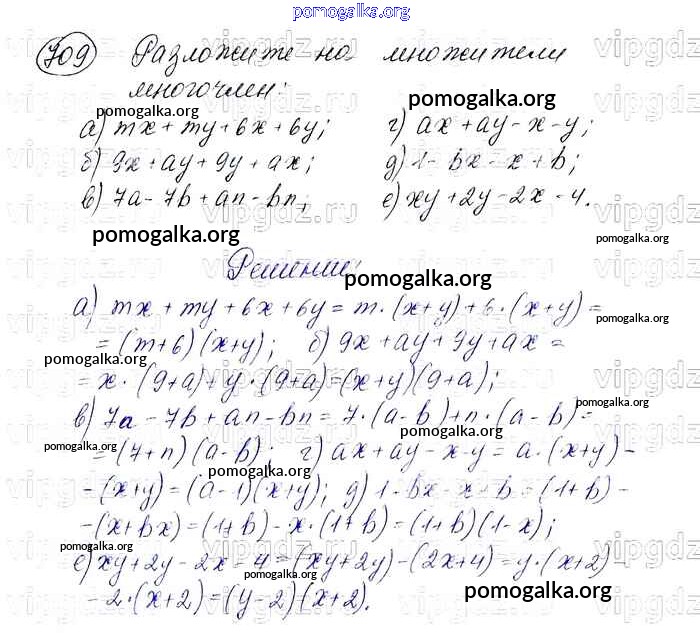 pomogalka.org
709 Разложите на множители
многочлен:
pomogalka.org pomogalka.org
а) mx + my + 6x + 6y; г) ax + ay - x - y;
б) 9x + ay + 9y + ax; д) 1 - bx - x + b;
в) 7a - 7b + an - bn; е) xy + 2y - 2x - 4.
pomogalka.org pomogalka.org
Решение:
pomogalka.org
а) mx + my + 6x + 6y = m · (x + y) + 6 · (x + y) =
pomogalka.org
= (m + 6) (x + y); б) 9x + ay + 9y + ax =
pomogalka.org
= x · (9 + a) + y · (9 + a) = (x + y) (9 + a);
pomogalka.org
в) 7a - 7b + an - bn = 7 · (a - b) + n · (a - b) =
pomogalka.org pomogalka.org
= (7 + n) (a - b); г) ax + ay - x - y = a · (x + y) -
pomogalka.org
- (x + y) = (a - 1) (x + y); д) 1 - bx - x + b = (1 + b) -
- (x + bx) = (1 + b) - x · (1 + b) = (1 + b) (1 - x);
pomogalka.org pomogalka.org
е) xy + 2y - 2x - 4 = (xy + 2y) - (2x + 4) = y · (x + 2) -
pomogalka.org
- 2 · (x + 2) = (y - 2) (x + 2).
pomogalka.org pomogalka.org
vipgdz.ru